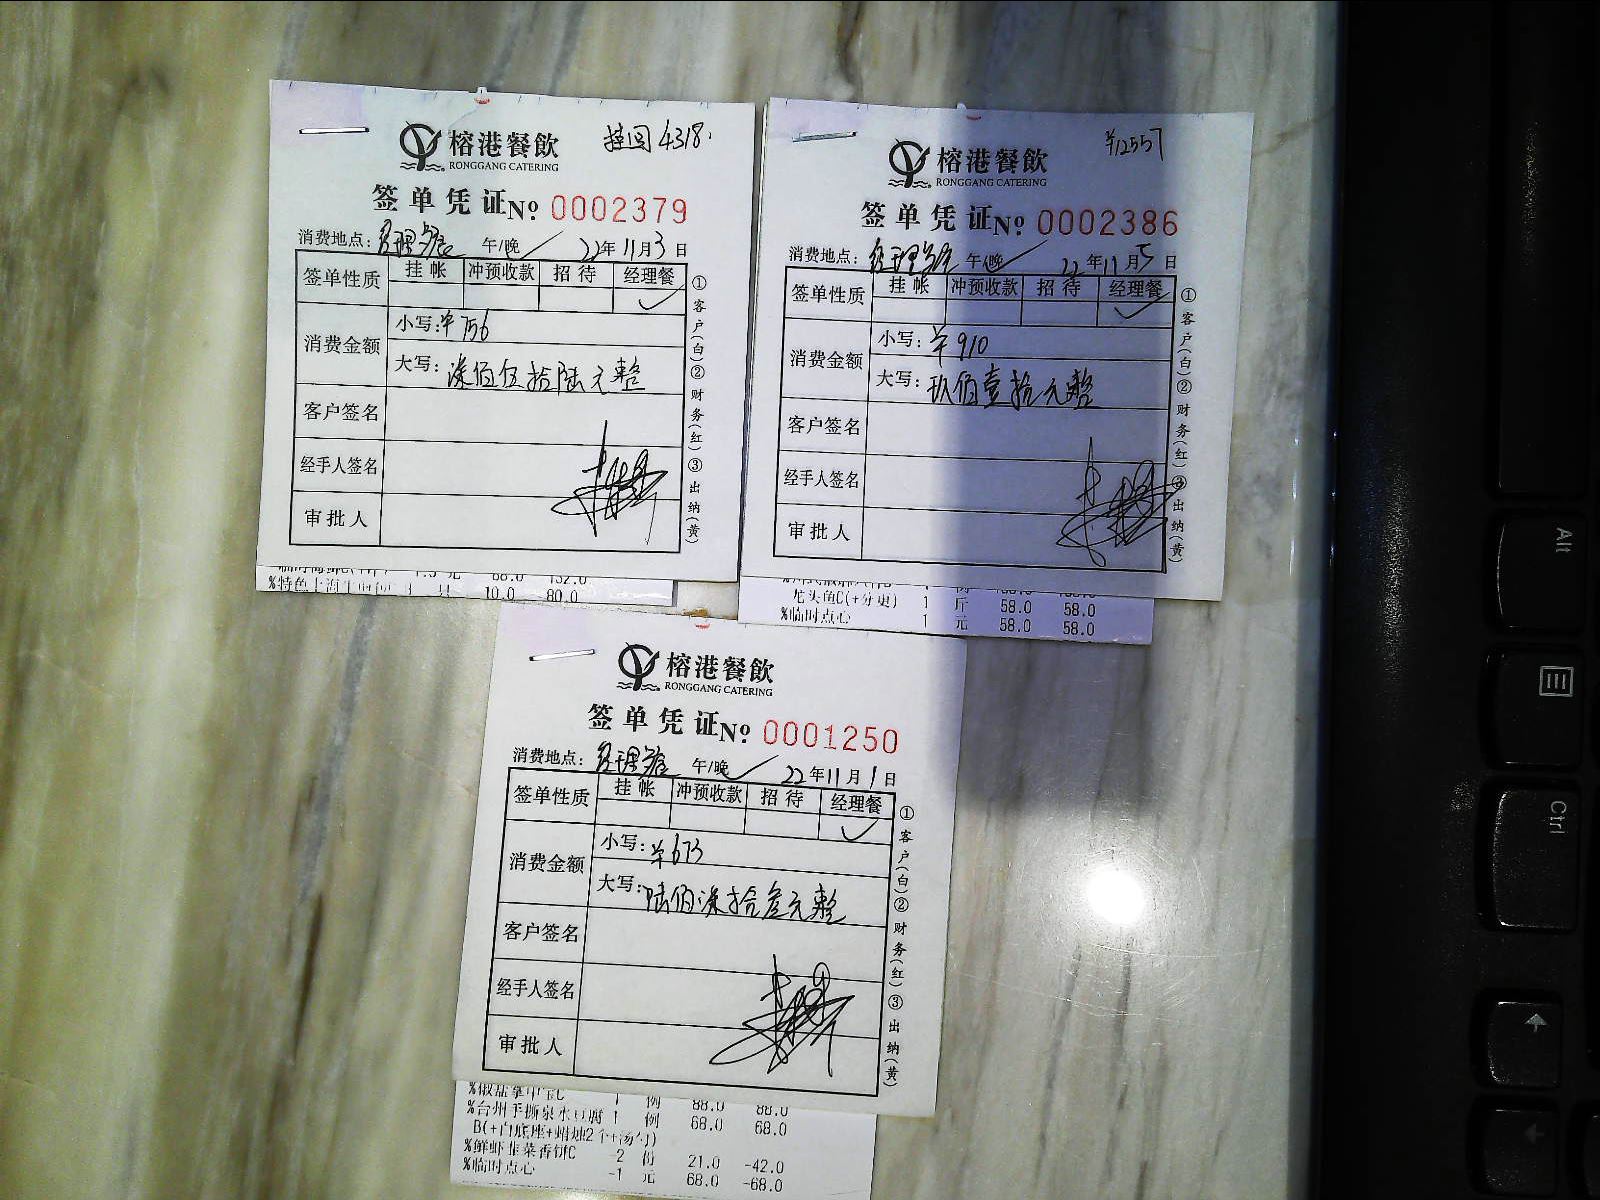 榕港餐飲
RONGGANG CATERING
挂回4318.
签单凭证 No. 0002379
消费地点: 经理餐 午/晚 22年11月3日
签单性质 挂帐 冲预收款 招待 经理餐
消费金额 小写:¥756
大写:柒佰伍拾陆元整
客户签名
经手人签名
审批人
①客户(白)②财务(红)③出纳(黄)
10.0 80.0
榕港餐飲
RONGGANG CATERING
¥12557
签单凭证 No. 0002386
消费地点: 经理餐 午/晚 22年11月5日
签单性质 挂帐 冲预收款 招待 经理餐
消费金额 小写:¥910
大写:玖佰壹拾元整
客户签名
经手人签名
审批人
①客户(白)②财务(红)③出纳(黄)
龙头鱼C(+分更) 1 斤 58.0 58.0
%临时点心 1 元 58.0 58.0
榕港餐飲
RONGGANG CATERING
签单凭证 No. 0001250
消费地点: 经理餐 午/晚 22年11月1日
签单性质 挂帐 冲预收款 招待 经理餐
消费金额 小写:¥673
大写:陆佰柒拾叁元整
客户签名
经手人签名
审批人
①客户(白)②财务(红)③出纳(黄)
1 例 88.0 88.0
%台州手撕泉水豆腐 1 例 68.0 68.0
%鲜虾韭菜香饼C -2 份 21.0 -42.0
%临时点心 -1 元 68.0 -68.0
Alt
Ctrl